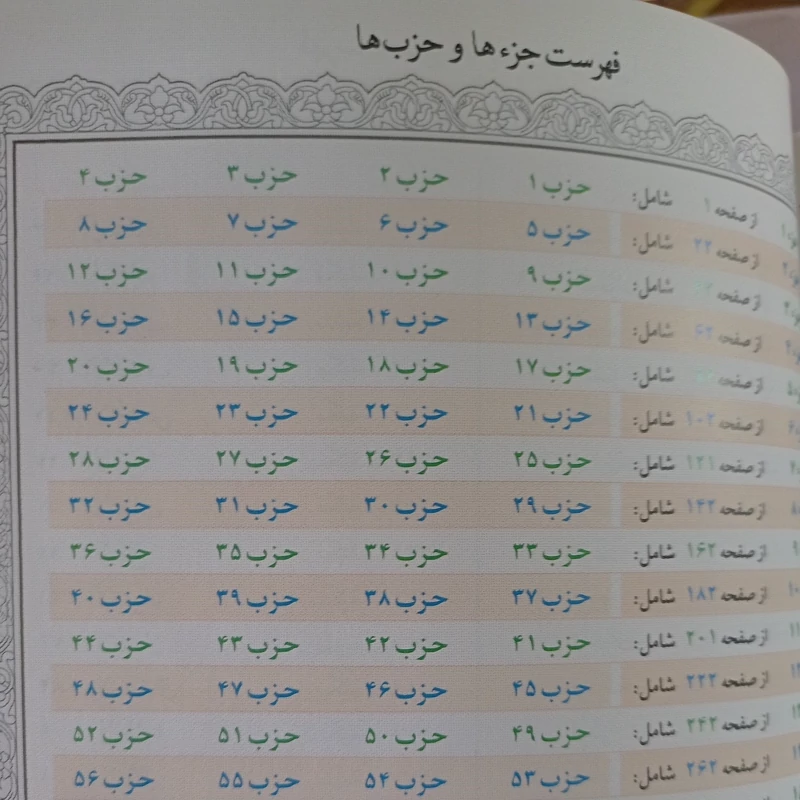 فهرست جزء‌ها و حزب‌ها
از صفحه ۱ شامل: حزب ۱ حزب ۲ حزب ۳ حزب ۴
از صفحه ۲۲ شامل: حزب ۵ حزب ۶ حزب ۷ حزب ۸
از صفحه شامل: حزب ۹ حزب ۱۰ حزب ۱۱ حزب ۱۲
از صفحه ۶۲ شامل: حزب ۱۳ حزب ۱۴ حزب ۱۵ حزب ۱۶
از صفحه شامل: حزب ۱۷ حزب ۱۸ حزب ۱۹ حزب ۲۰
از صفحه ۱۰۲ شامل: حزب ۲۱ حزب ۲۲ حزب ۲۳ حزب ۲۴
از صفحه ۱۲۱ شامل: حزب ۲۵ حزب ۲۶ حزب ۲۷ حزب ۲۸
از صفحه ۱۴۲ شامل: حزب ۲۹ حزب ۳۰ حزب ۳۱ حزب ۳۲
از صفحه ۱۶۲ شامل: حزب ۳۳ حزب ۳۴ حزب ۳۵ حزب ۳۶
از صفحه ۱۸۲ شامل: حزب ۳۷ حزب ۳۸ حزب ۳۹ حزب ۴۰
از صفحه ۲۰۱ شامل: حزب ۴۱ حزب ۴۲ حزب ۴۳ حزب ۴۴
از صفحه ۲۲۲ شامل: حزب ۴۵ حزب ۴۶ حزب ۴۷ حزب ۴۸
از صفحه ۲۴۲ شامل: حزب ۴۹ حزب ۵۰ حزب ۵۱ حزب ۵۲
از صفحه ۲۶۲ شامل: حزب ۵۳ حزب ۵۴ حزب ۵۵ حزب ۵۶